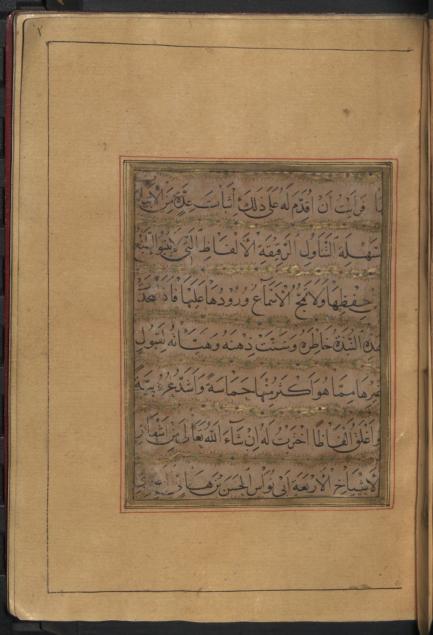 فرأيت أن أقدم له على ذلك أبيات عدة من
السهلة التناول الرقيقة الألفاظ التي
حفظها ولا تمج الأسماع ورودها عليها فاذا
هذه النبذة خاطره وسنت ذهنه وهتانه
مما هو اكثر منها حماسة واشد
واغلق ألفاظا اخترت له إن شاء الله تعالى من اشعار
الأشياخ الأربعة أبي نواس الحسن بن هانئ